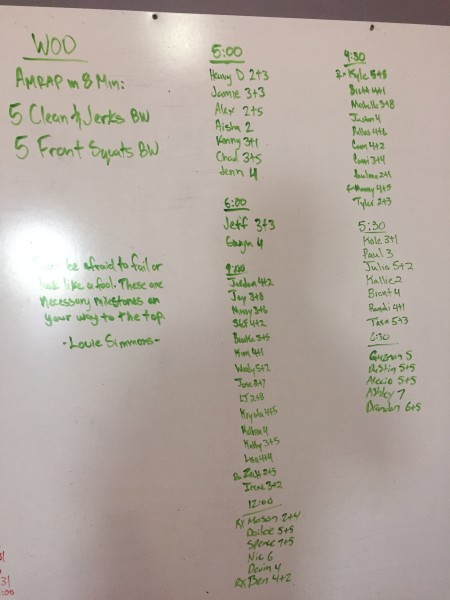 WOD
AMRAP in 8 Min:
5 Clean & Jerks BW
5 Front Squats BW
be afraid to fail or
look like a fool. These are
necessary milestones on
your way to the top.
-Louie Simmons-
5:00
Henry D 2+3
Jamie 3+3
Alex 2+5
Aisha 2
Kenny 3+1
Chad 3+5
Jenn 4
6:00
Jeff 3+3
Gavyn 4
9:00
Jordan 4+2
Jay 3+8
Missy 3+6
4+2
3+5
Kim 4+1
Wendy 5+2
Jane 3+7
LJ 2+8
Krysta 4+5
4
Kathy 3+5
Lisa 4+4
Rx
Irene 3+2
12:00
Rx Mason 2+4
5+5
Spence 7+5
Nic 6
Devin 4
Rx Ben 4+2
4:30
Rx Kyle 5+8
Brett 4+1
Michelle 3+8
Justin 4
Dallas 4+6
Conn 4+2
3+4
2+1
4+5
Tyler 2+3
5:30
Kole 3+1
Paul 3
Julia 5+2
Kallie 2
Briant 4
Randi 4+1
Tara 5+3
6:30
5
Dustin 5+5
Alecio 5+5
Ashley 7
Brandon 6+5